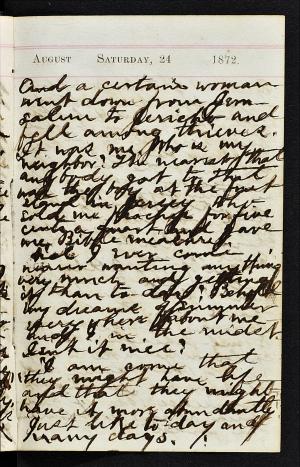 August Saturday, 24 1872.
And a certain woman
went down from Jeru-
salem to Jericho and
fell among thieves.
It was me. Who is my
neighbor? The nearest that
anybody got to that
was the boy at the fruit
stand in Jersey that
sold me peaches for five
cents a quart and gave
me Bible measure!
Did I ever come
nearer wanting any thing
very much and getting
it than to day! Bengal
my dreams
every where about me
me in the midst.
Isn't it nice?
I am come that
they might have life
and that they might
have it more abundantly
Just like to day and
many days. !